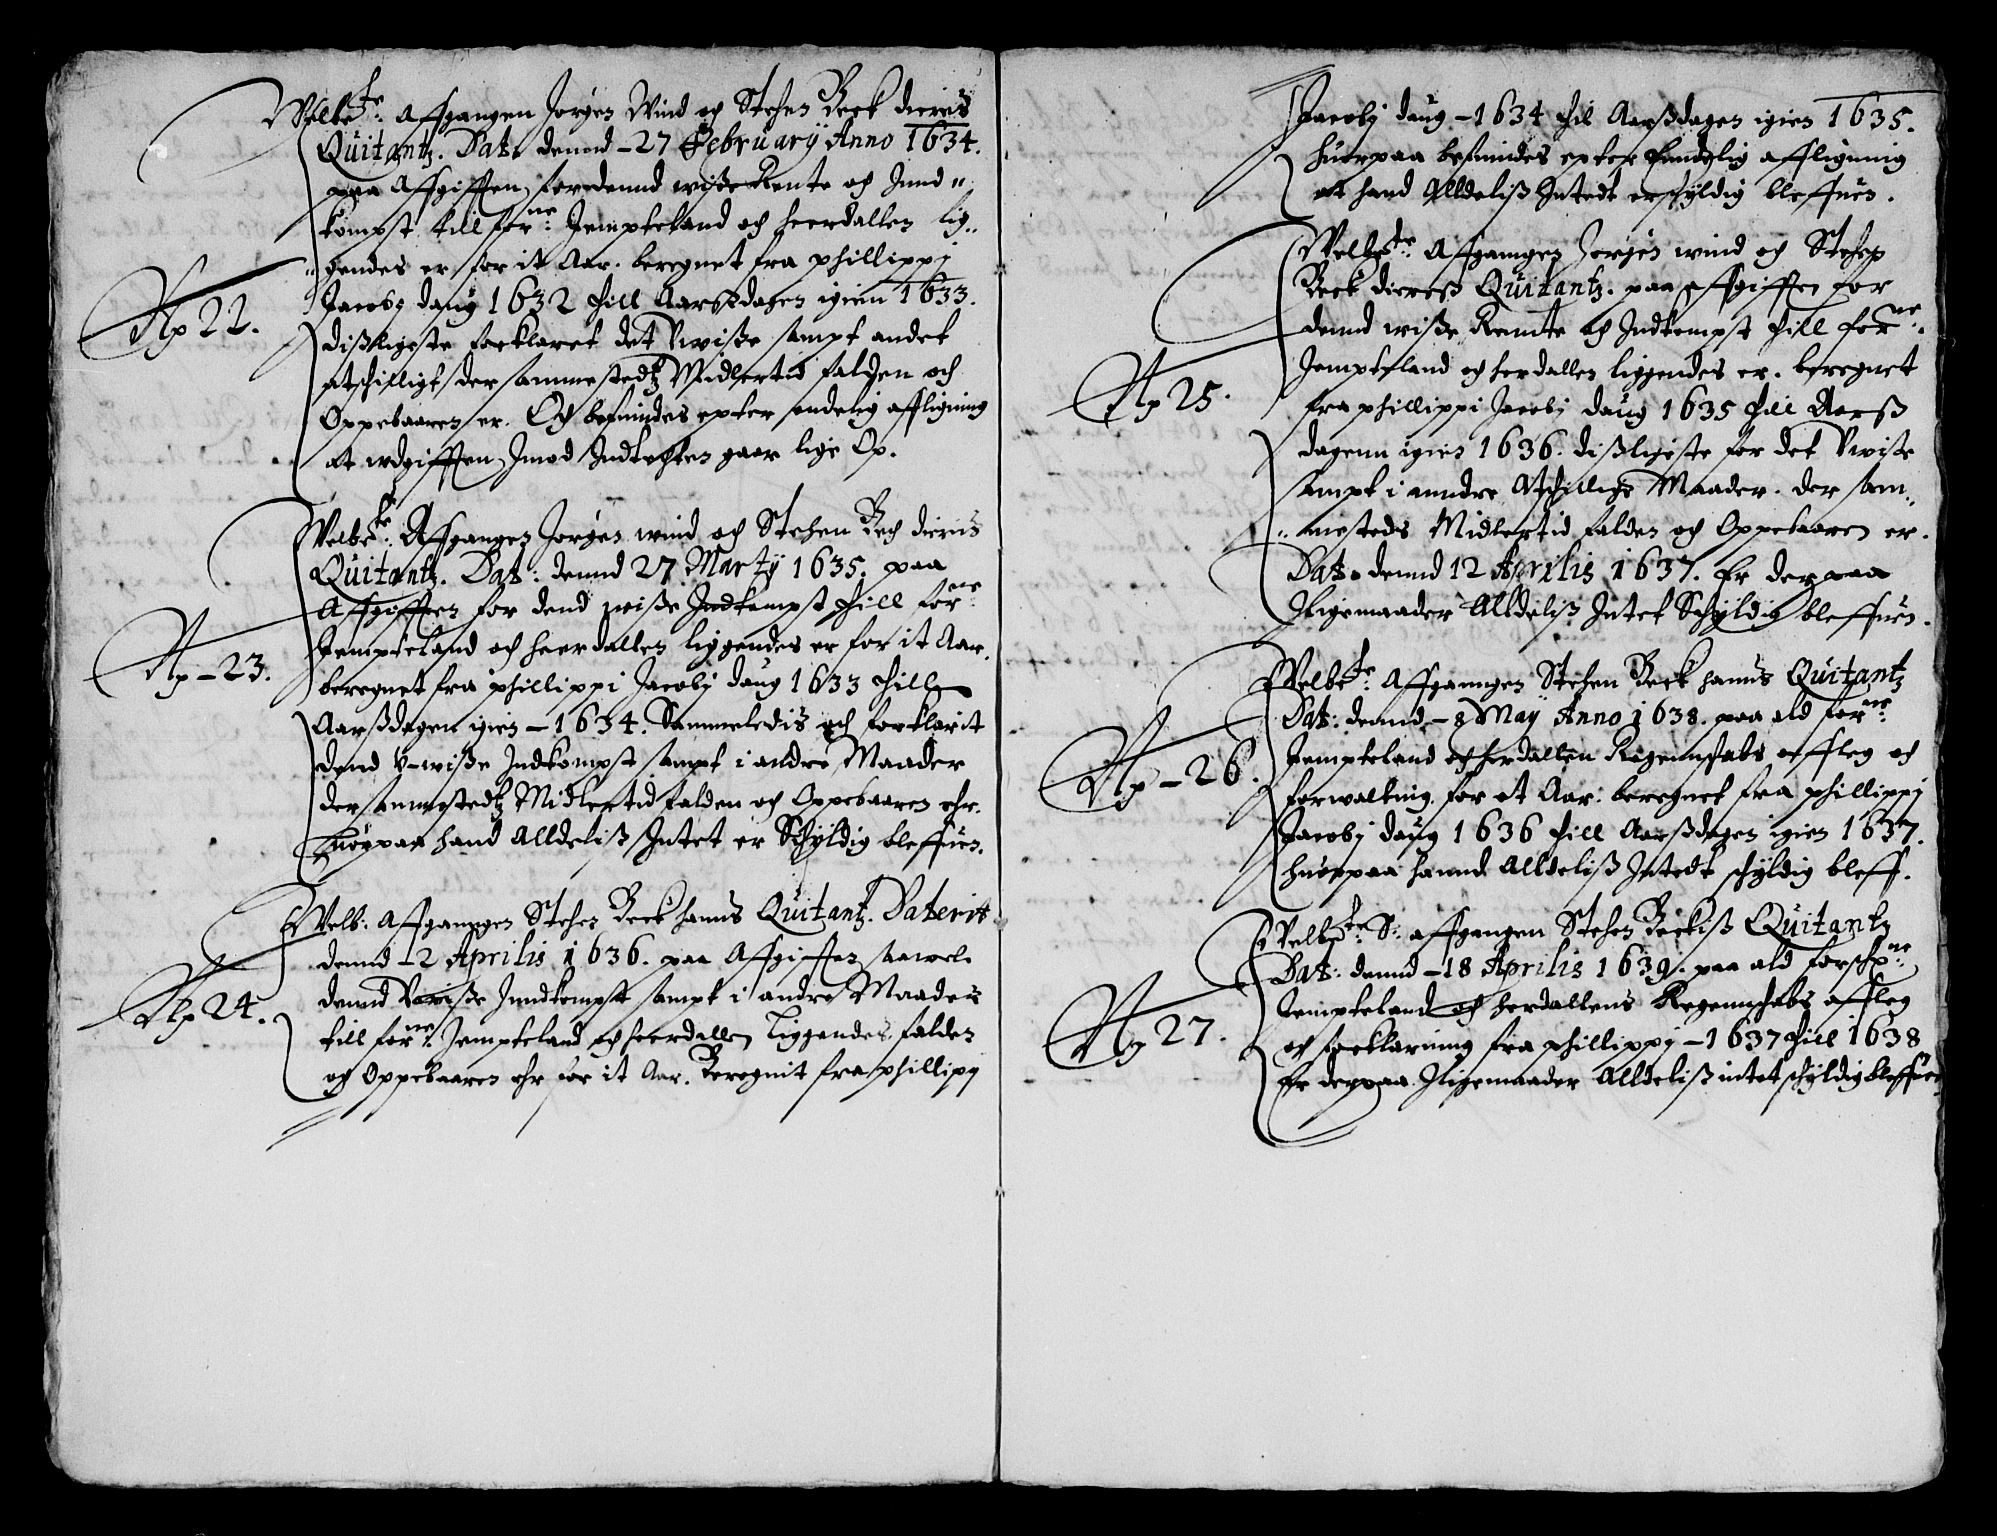 Welbte: Affgangen Jørgen Wind och Stehen Beck dieris
Quitantz. Dat. dennd - 27 February Anno 1634.
paa Affgifften foredennd wiße Rente och Innd„
kompst till forne: Jempteland och heerdallen lig„
„gendes er for it Aar. beregnet fra phillippi
Jacobj daug 1632 till Aarßdagen igien 1633.
dißligeste forklaret det Vwiße sampt andet
atschilligt der sammestedtz Midlertid falden och
Oppebaaren er. Och befindes epter endelig affligning
at vdgifften Jmod Indtechten gaar lige Op.
No 22.
Welbte: Affgangen Jørgen wind och Stehen Bech dieris
Quitantz. Dat: dennd 27 Marty 1635. paa
Affgifften for dend wiße Indkompst till forne:
Jempteland och heerdallen liggendes er for it Aar.
beregnet fra phillippi Jacobj daug 1633 till
Aarßdagen igien - 1634. Sammeledis och forklarit
dend v-wiße Indkompst sampt i andre Maader
dersammestedtz Midlertid falden och Oppebaaren ehr.
huorpaa hand Alldeliß Intet er Schyldig bleffuen.
No - 23.
Welb: Affgangen Stehen Beck hanns Quitantz. Daterit
dennd - 2 Aprilis 1636. paa Affgifften saawel.
dennd Vwiße Inndkompst sampt i andre Maader
till forne: Jempteland och heerdallen Liggendes falden
och Oppebaaren ehr for it Aar. Beregnit fra phillipj
No 24.
Jacobj daug - 1634 till Aarßdagen igien 1635.
huorpaa befindes epter Enndelig affligning
at hand Alldeliß Intedt erschyldig bleffuen.
Welbte: Affgangen Jørgen wind och Stehen
Beck diereß Quitantz. paa affgifften for
dennd wiße Rennte och Indkompst till forne:
Jempteland och herdallen liggendes er. beregnet
fra phillippi Jacobj daug 1635 till Aarß
dagenn igien 1636. dißligeste for det Vwiße
sampt i anndre Atschillige Maader. der sam„
„mesteds Midlertid falden och Oppebaaren er.
Dat. dennd 12 Aprilis 1637. Er der paa
Jligemaader Alldeliß Intet Schyldig bleffuen.
No 25.
Welbte: Affganngen Stehen Beck hanns Quitantz
Dat: dennd - 8 May Anno 1638. paa ald forne:
Jempteland och herdallen Regennskabs affleg och
forwaltnig. for et Aar: beregnet fra phillippj
Jacobj daug 1636 till Aarßdagen igien 1637.
huorpaa hannd Alldeliß Intedt schyldig bleff.
No - 26.
Welbte: S: affgangen Stehen Beckiß Quitantz
Dat: dennd - 18 Aprilis 1639. paa ald forschne:
Jempteland och herdallens Regennschabs affleg
och forklarinng fra phillippj - 1637 till 1638
Er derpaa Jligemaader Alldeliß intet schyldig bleffuen
No 27.